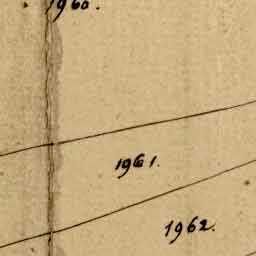 1960.
1961.
1962.